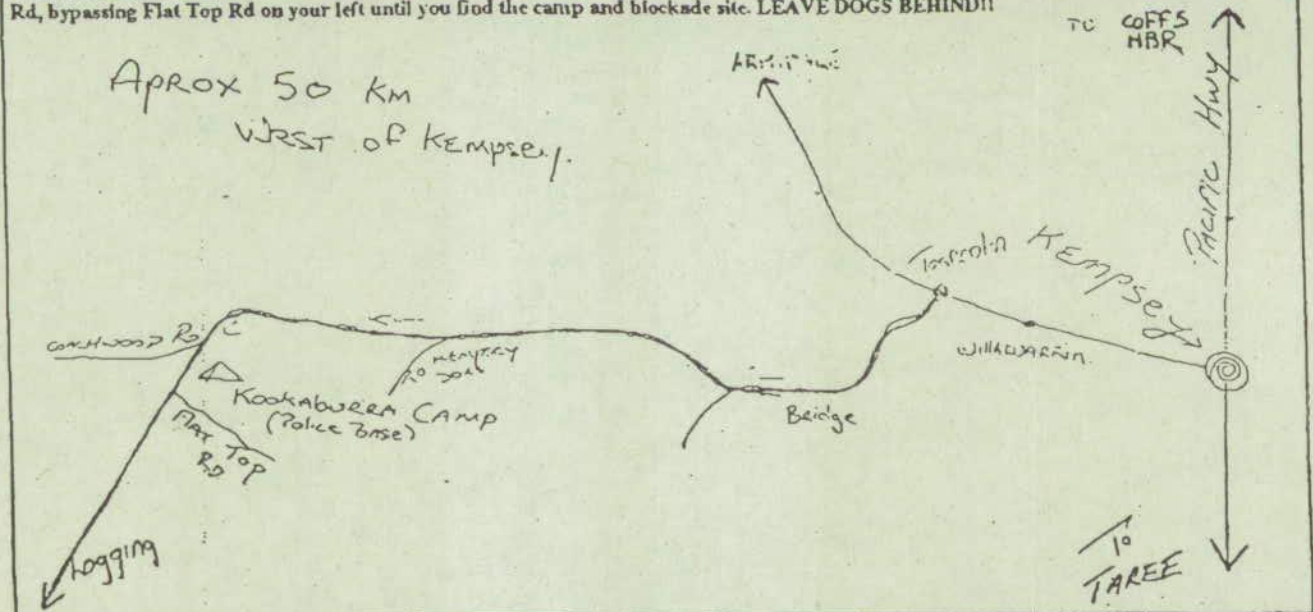 Rd, bypassing Flat Top Rd on your left until you find the camp and blockade site. LEAVE DOGS BEHIND!!
TO COFFS
HBR
APROX 50 KM
WEST OF KEMPSEY.
PACIFIC HWY
KEMPSEY
WILLAWARRIN.
COACHWOOD RD
KOOKABURRA CAMP
(POLICE BASE)
Bridge
FLAT TOP
RD
Logging
TO
TAREE